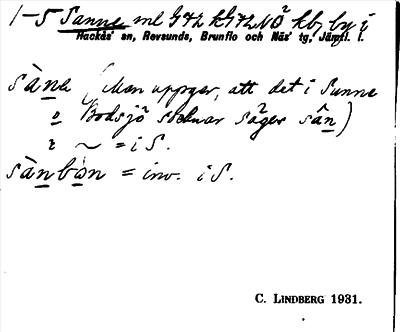 1-5 Sunne ml G42 kG42 NÖ kby by i
Hackås' sn, Revsunds, Brunflo och Näs' tg, Jämtl. l.
sàna (Man uppger, att det i Sunne
o Bodsjö socknar säges sân)
i ~ = i S.
sànbòn = inv. i S.
C. LINDBERG 1931.